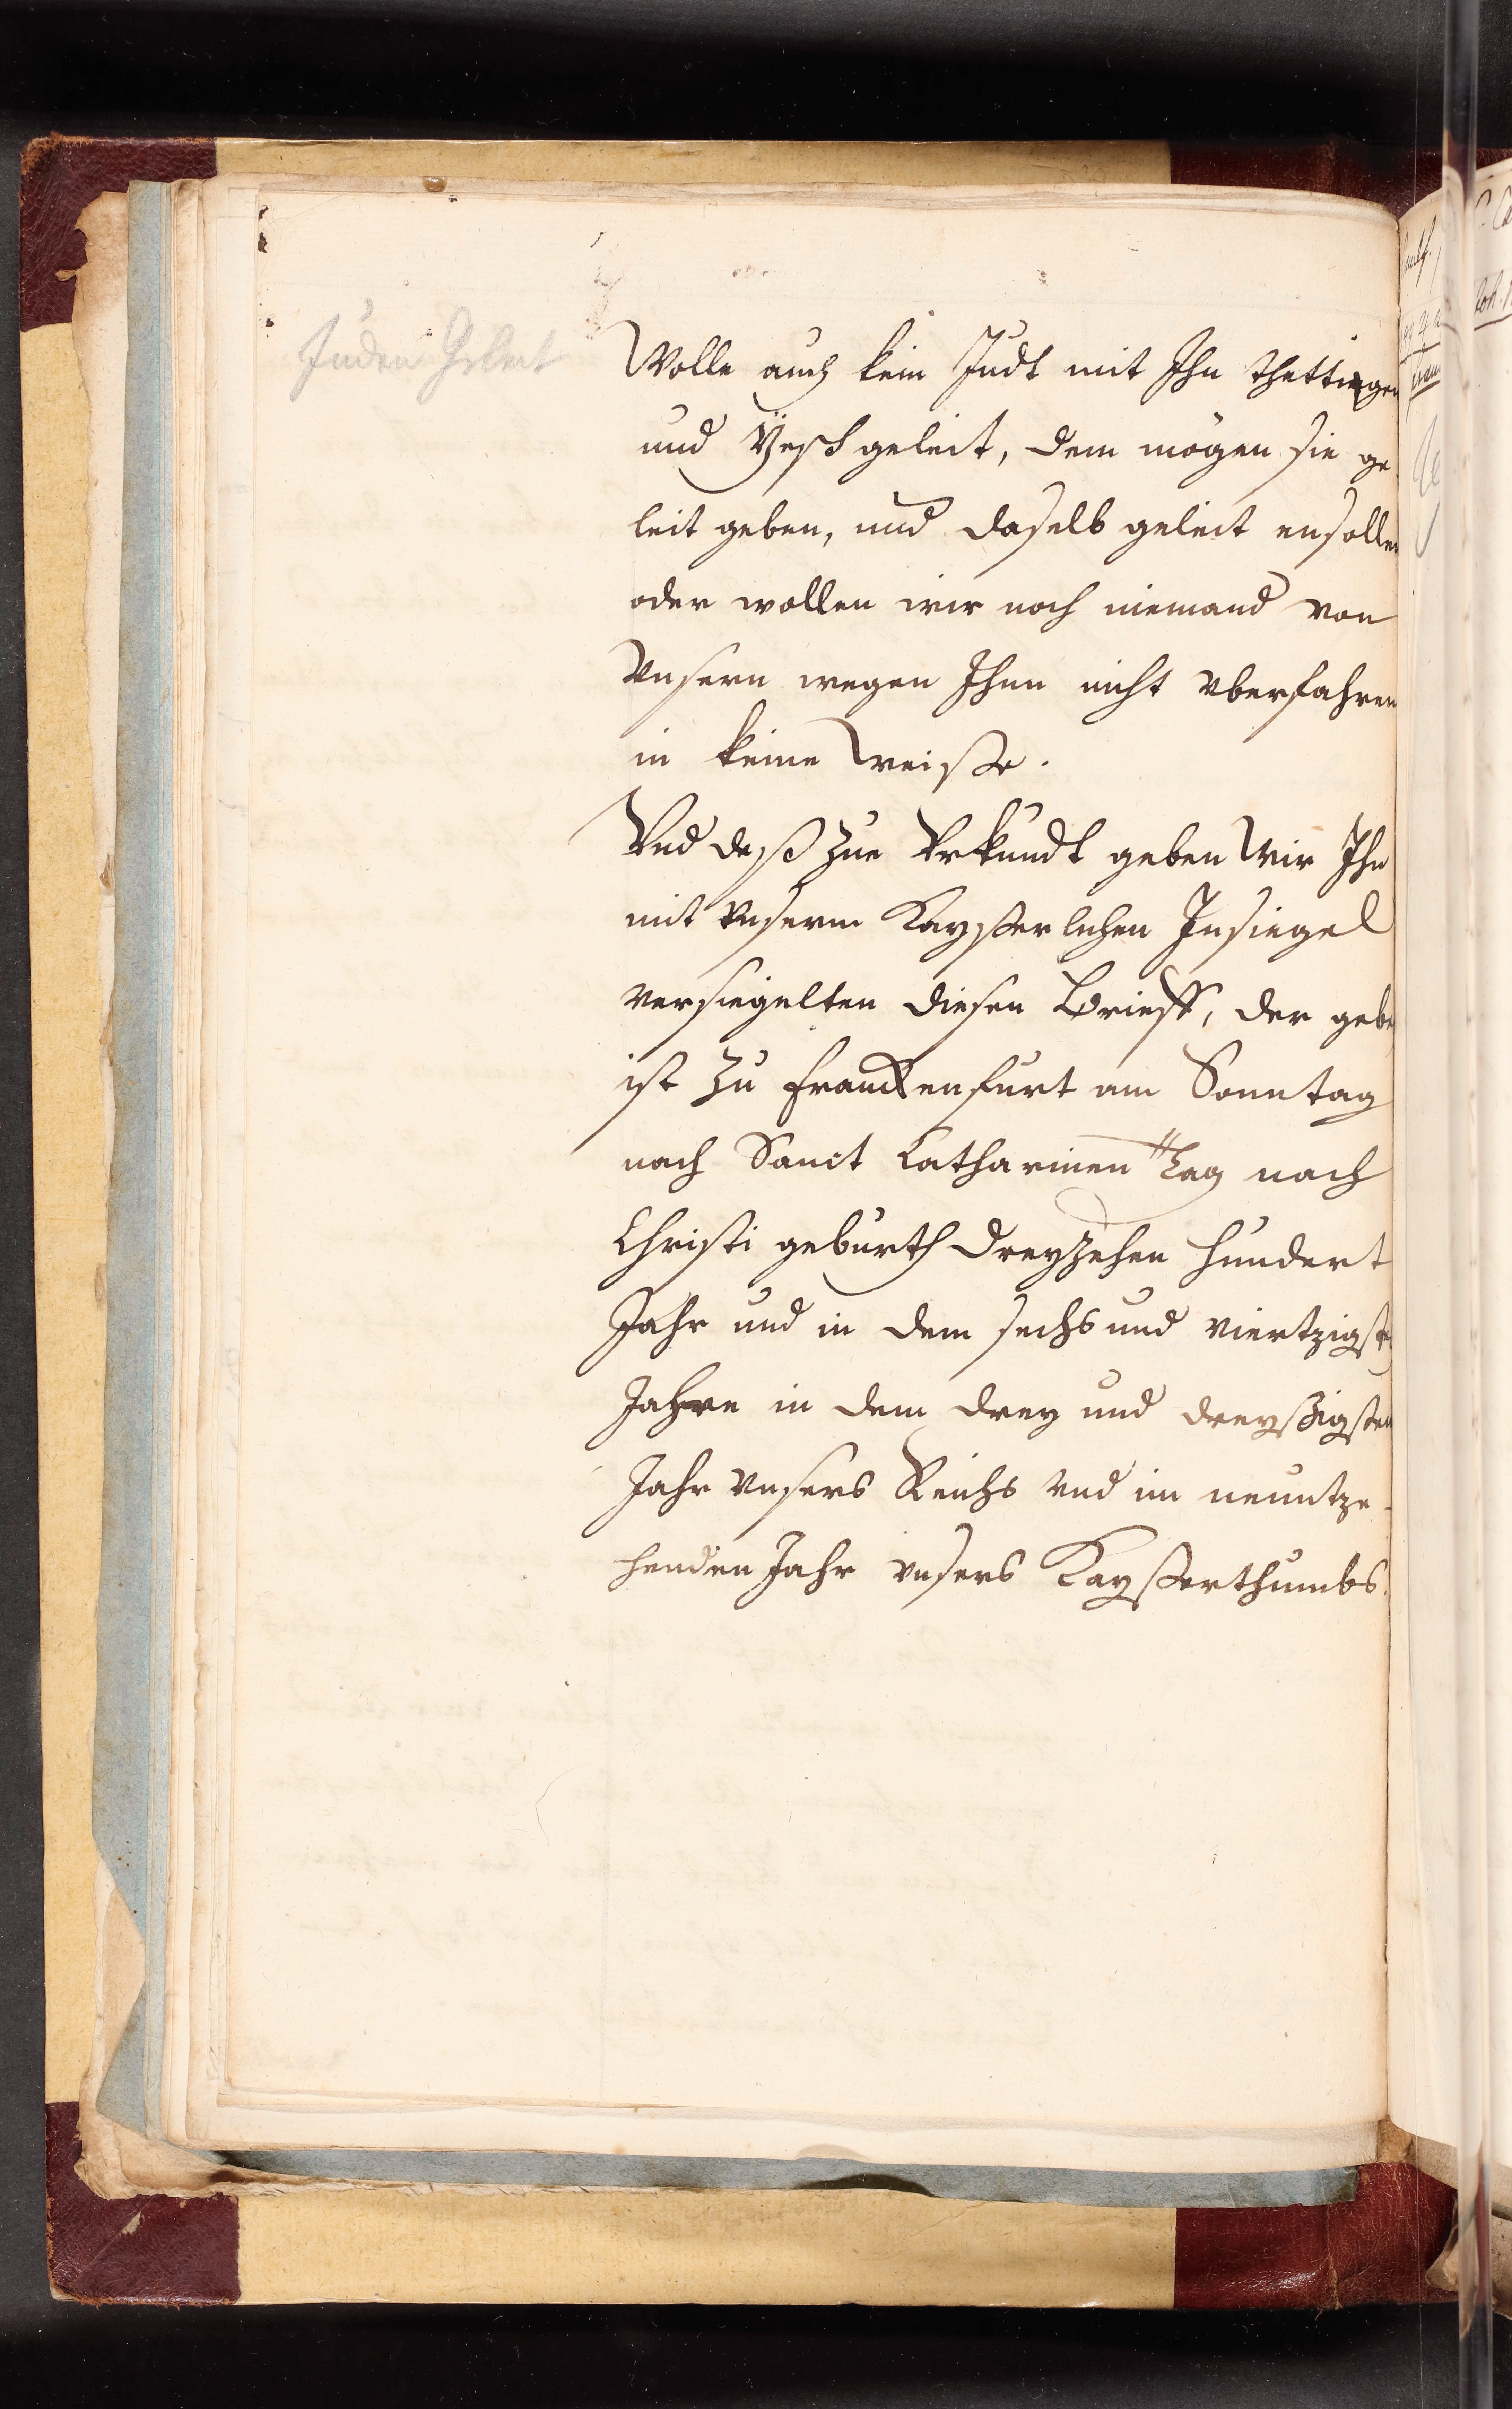 Juden Geleit
Wolle auch kein Judt mit Ihn thettingen
und geleit, dem mögen sie ge-
leit geben, und daselb geleit ensollen
oder wollen wir noch niemand von
Vnsern wegen Ihnn nicht vberfahren
in keine Weiße.
Vnd deß zue Vrkundt geben Wir Ihn
mit vnserm Kayßerlichen Insiegel
versiegelten diesen Brieff, der gebe
ist zu Franckenfurt am Sonntag
nach Sanct Catharinen Tag nach
Christi geburth dreyzehen hundert
Jahr und in dem sechs und viertzigsten
Jahre in dem drey und dreyßigsten
Jahr vnsers Reichs vnd im neuntze-
henden Jahr vnsers Kayßerthumbs.